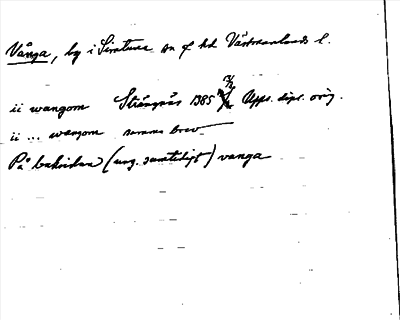 Vånga, by i Simtuna sn o. hd Västmanlands l.
ii wangom Strängnäs 1385 13/2 Upps. dipl. orig.
ii ... wangom samma brev
På baksidan (ung. samtidigt) vanga